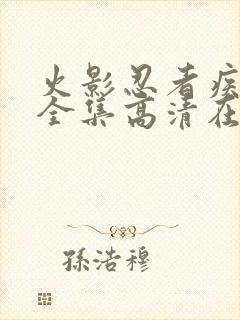 火影忍者疾
全集高清在
孫浩穆